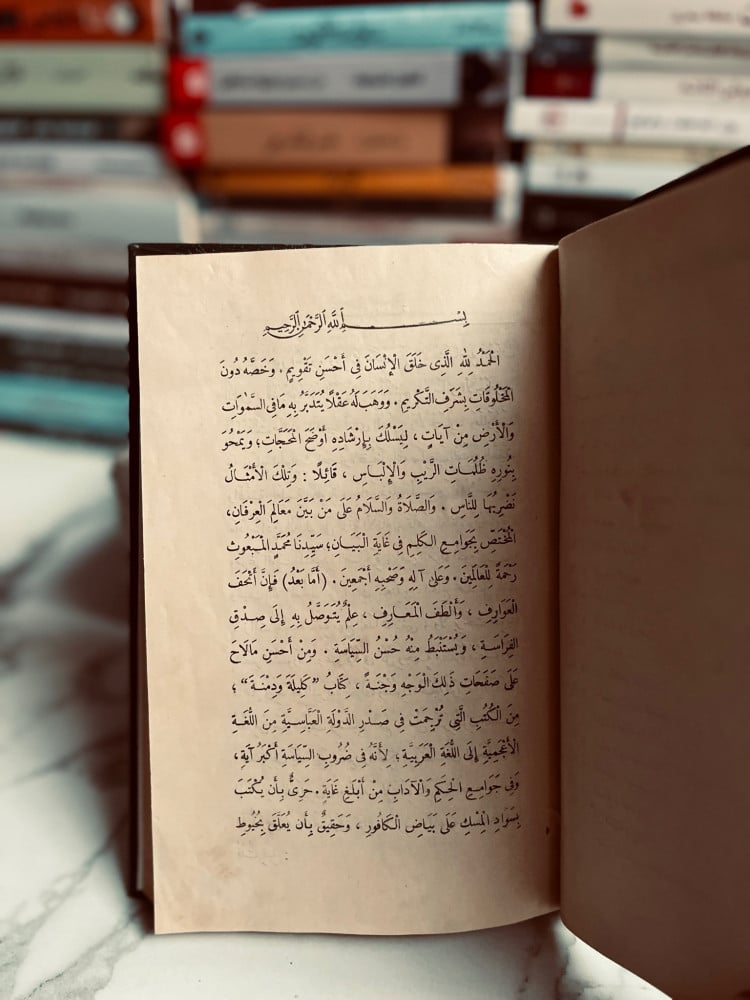 بِسْــــــمِ ٱللَّهِ ٱلرَّحْمَٰنِ ٱلرَّحِيمِ
الْحَمْدُ لِلهِ الَّذِى خَلَقَ الْإِنْسَانَ فِى أَحْسَنِ تَقْوِيمٍ . وَخَصَّهُ دُونَ
الْمَخْلُوقَاتِ بِشَرَفِ التَّكْرِيمِ . وَوَهَبَ لَهُ عَقْلًا يُتَدَبَّرُ بِهِ مَا فِى السَّمٰوَاتِ
وَالْأَرْضِ مِنْ آيَاتٍ ، لِيَسْلُكَ بِإِرْشَادِهِ أَوْضَحَ الْمَحَجَّاتِ؛ وَيَمْحُوَ
بِنُورِهِ ظُلُمَاتِ الرَّيْبِ وَالْإِلْبَاسِ ، قَائِلًا : وَتِلْكَ الْأَمْثَالُ
نَضْرِبُهَا لِلنَّاسِ . وَالصَّلَاةُ وَالسَّلَامُ عَلَى مَنْ بَيَّنَ مَعَالِمَ الْعِرْفَانِ،
الْمُخْتَصِّ بِجَوَامِعِ الْكَلِمِ فِى غَايَةِ الْبَيَانِ؛ سَيِّدِنَا مُحَمَّدٍ الْمَبْعُوثِ
رَحْمَةً لِلْعَالَمِينَ . وَعَلَى آلِهِ وَصَحْبِهِ أَجْمَعِينَ . (أَمَّا بَعْدُ) فَإِنَّ أَتْحَفَ
الْعَوَارِفِ ، وَأَلْطَفَ الْمَعَارِفِ ، عِلْمٌ يُتَوَصَّلُ بِهِ إِلَى صِدْقِ
الْفِرَاسَةِ ، وَيُسْتَنْبَطُ مِنْهُ حُسْنُ السِّيَاسَةِ . وَمِنْ أَحْسَنِ مَا لَاحَ
عَلَى صَفَحَاتِ ذٰلِكَ الْوَجْهِ وَجْنَةً ، كِتَابُ "كَلِيلَةَ وَدِمْنَةَ" ؛
مِنَ الْكُتُبِ الَّتِى تُرْجِمَتْ فِى صَدْرِ الدَّوْلَةِ الْعَبَّاسِيَّةِ مِنَ اللُّغَةِ
الْأَعْجَمِيَّةِ إِلَى اللُّغَةِ الْعَرَبِيَّةِ ؛ لِأَنَّهُ فِى ضُرُوبِ السِّيَاسَةِ أَكْبَرُ آيَةٍ،
وَفِى جَوَامِعِ الْحِكَمِ وَالْآدَابِ مِنْ أَبْلَغِ غَايَةٍ . حَرِىٌّ بِأَن يُكْتَبَ
بِسَوَادِ الْمِسْكِ عَلَى بَيَاضِ الْكَافُورِ ، وَحَقِيقٌ بِأَن يُعَلَّقَ بِخُيُوطِ